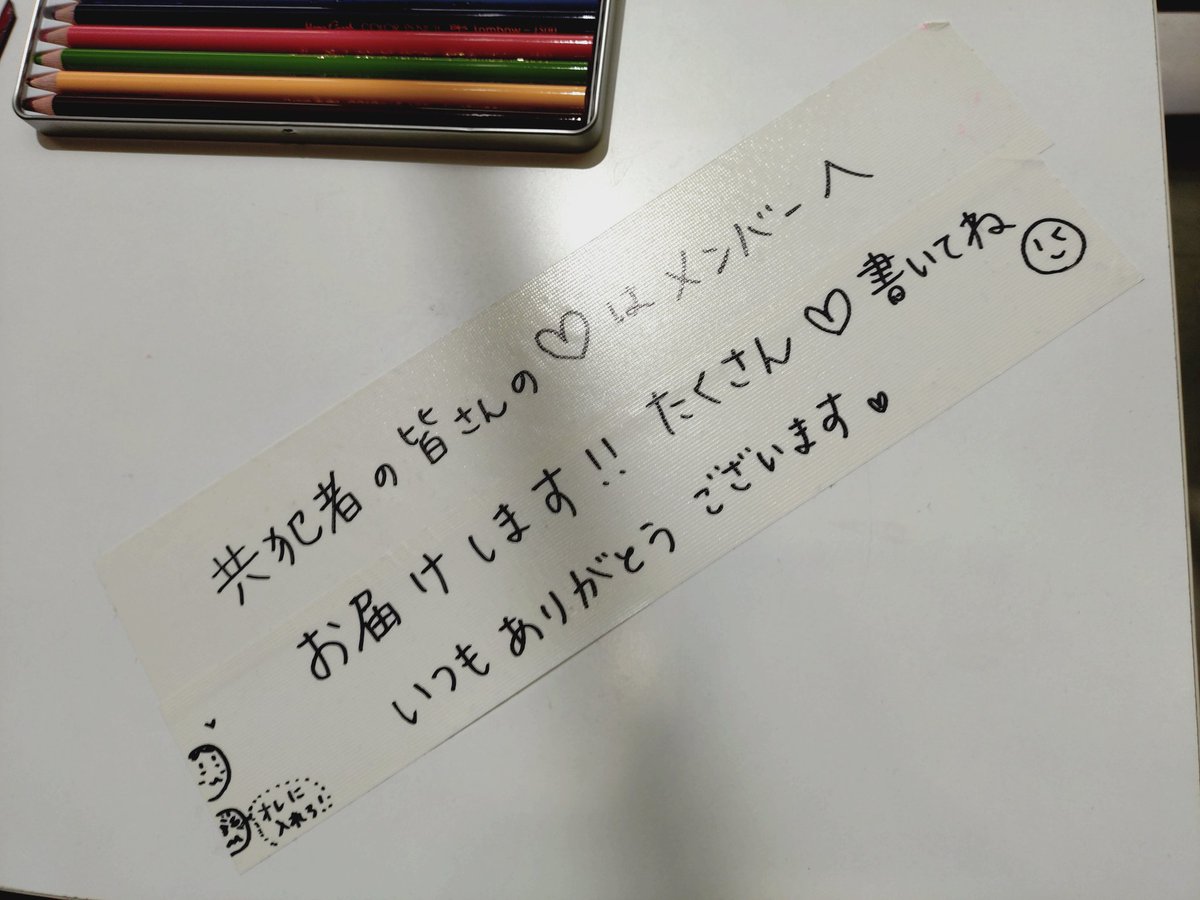 Tombow-1500
共犯者の皆さんの♡はメンバーへ
お届けします!! たくさん♡書いてね
いつもありがとうございます♥
オレに
入れろ!